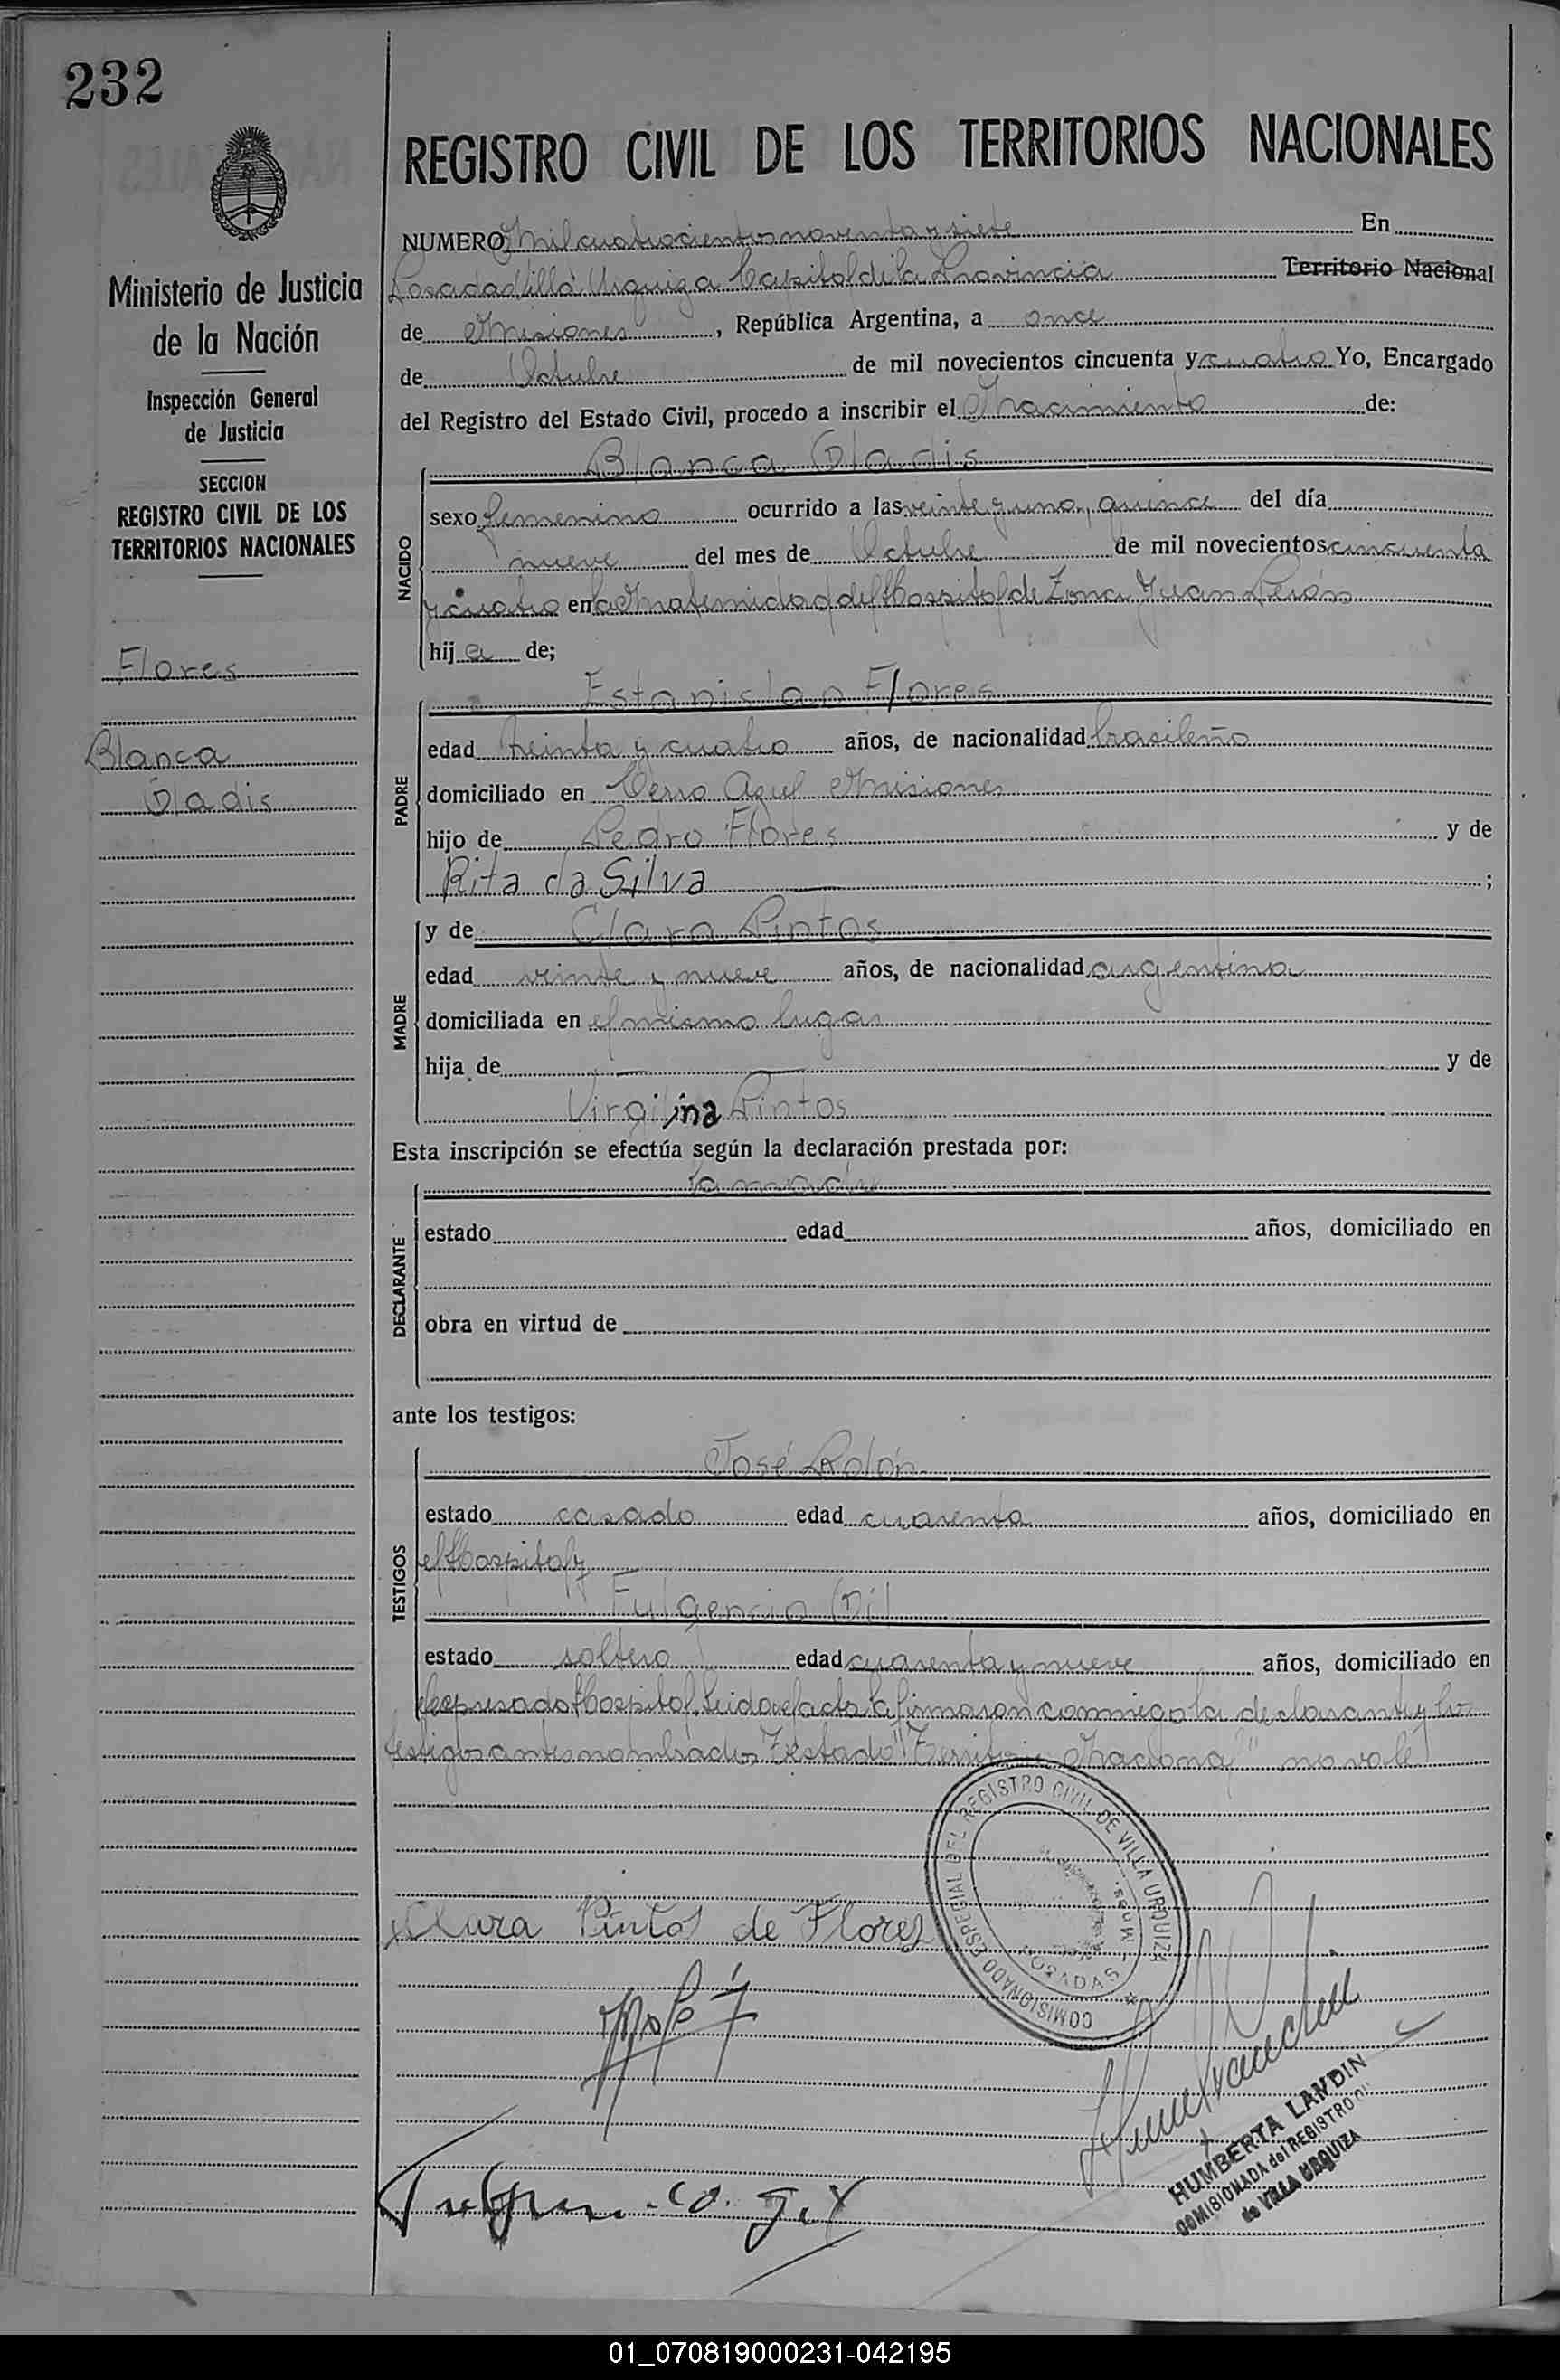 232
Ministerio de Justicia
de la Nación
Inspección General
de Justicia
SECCION
REGISTRO CIVIL DE LOS
TERRITORIOS NACIONALES
Flores
Blanca
Gladis
REGISTRO CIVIL DE LOS TERRITORIOS NACIONALES
NUMERO Mil cuatrocientos noventa y siete En
Posadas Villa Urquiza Capital de la Provincia Territorio Nacional
de Misiones, República Argentina, a once
de Octubre de mil novecientos cincuenta y cuatro Yo, Encargado
del Registro del Estado Civil, procedo a inscribir el Nacimiento de:
Blanca Gladis
NACIDO
sexo femenino ocurrido a las veinte y una, quince del día
nueve del mes de Octubre de mil novecientos cincuenta
y cuatro en la Maternidad del Hospital de Zona Juan Perón
hija de;
Estanislao Flores
PADRE
edad treinta y cuatro años, de nacionalidad brasileño
domiciliado en Cerro Azul Misiones
hijo de Pedro Flores y de
Rita da Silva ;
MADRE
y de Clara Pintos
edad veinte y nueve años, de nacionalidad argentina
domiciliada en el mismo lugar
hija de — — y de
Virgilina Pintos
Esta inscripción se efectúa según la declaración prestada por:
la madre
DECLARANTE
estado edad años, domiciliado en
obra en virtud de
ante los testigos:
José Rolón
TESTIGOS
estado casado edad cuarenta años, domiciliado en
el Hospital y
Fulgencio Gil
estado soltero edad cuarenta y nueve años, domiciliado en
el expresado Hospital. Leida el acta la firmaron conmigo la declarante y los
testigos antes nombrados Testado "Territorio Nacional" no vale
COMISIONADO ESPECIAL DEL REGISTRO CIVIL DE VILLA URQUIZA
POSADAS - Mnes.
Clara Pintos de Flores
HUMBERTA LANDIN
COMISIONADA del REGISTRO
de VILLA URQUIZA
01_070819000231-042195